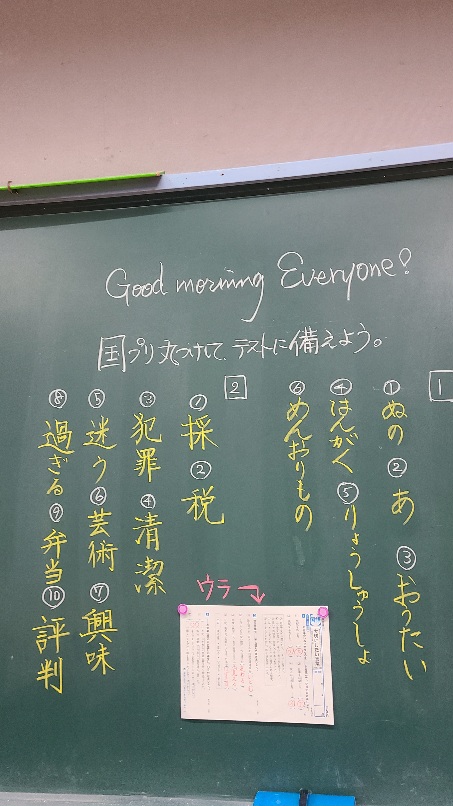 Good morning Everyone!
国プリ丸つけして、テストに備えよう。
1
①ぬの ②あ ③おうたい
④はんがく ⑤りょうしゅうしょ
⑥めんおりもの
2
①採 ②税
③犯罪 ④清潔
⑤迷う ⑥芸術 ⑦興味
⑧過ぎる ⑨弁当 ⑩評判
ウラ→